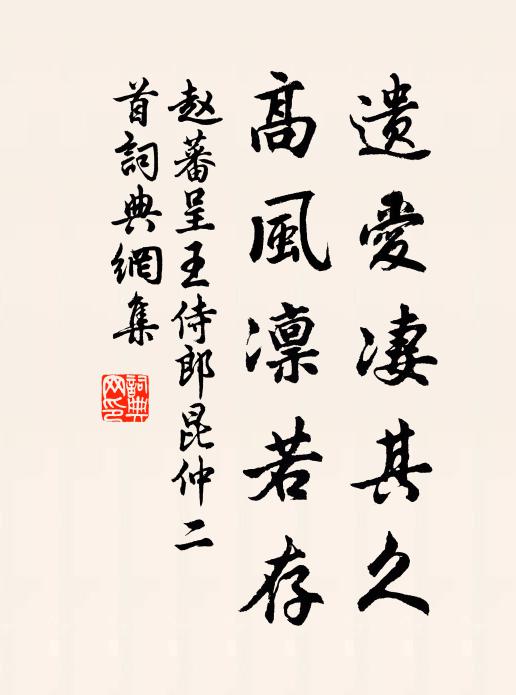 遺愛淒其久
高風凛若存
赵蕃呈王侍郎昆仲二
首詞典網集
詞典
网印